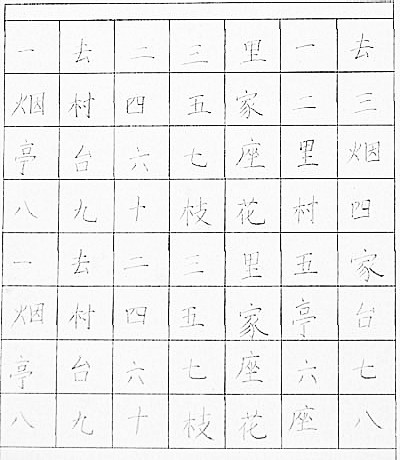 一去二三里一去
烟村四五家二三
亭台六七座里烟
八九十枝花村四
一去二三里五家
烟村四五家亭台
亭台六七座六七
八九十枝花座八